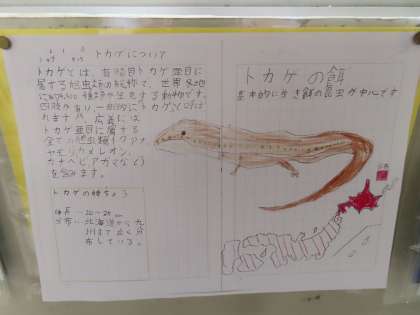 トカゲについて
トカゲとは、有鱗目トカゲ亜目に
属する爬虫類の総称で、世界各地に
種が生息する動物です。
四肢があり、一般的にトカゲと呼ば
れますが、広義には
トカゲ亜目に属する
全ての爬虫類(イグアナ、
ヤモリ、カメレオン、
カナヘビ、アガマなど)
を含みます。
トカゲの特ちょう
体長…20〜25cm
分布…北海道から九
州まで広く分
布している。
トカゲの餌
基本的に生き餌の昆虫が中心です